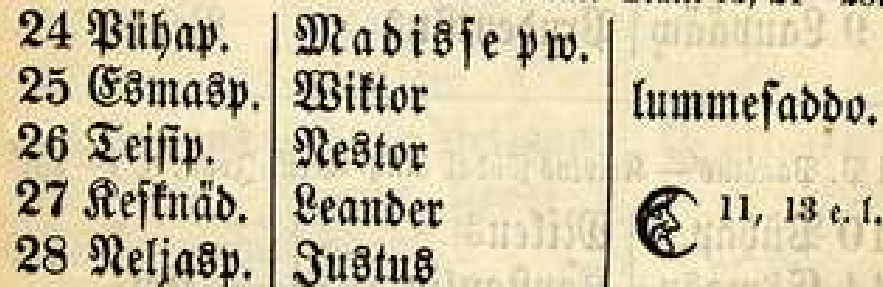 24 Pühap. Madisse pw.
25 Esmasp. Wiktor lummesaddo.
26 Teisip. Nestor
27 Kesknäd. Leander 11, 13 e. l.
28 Neljasp. Justus